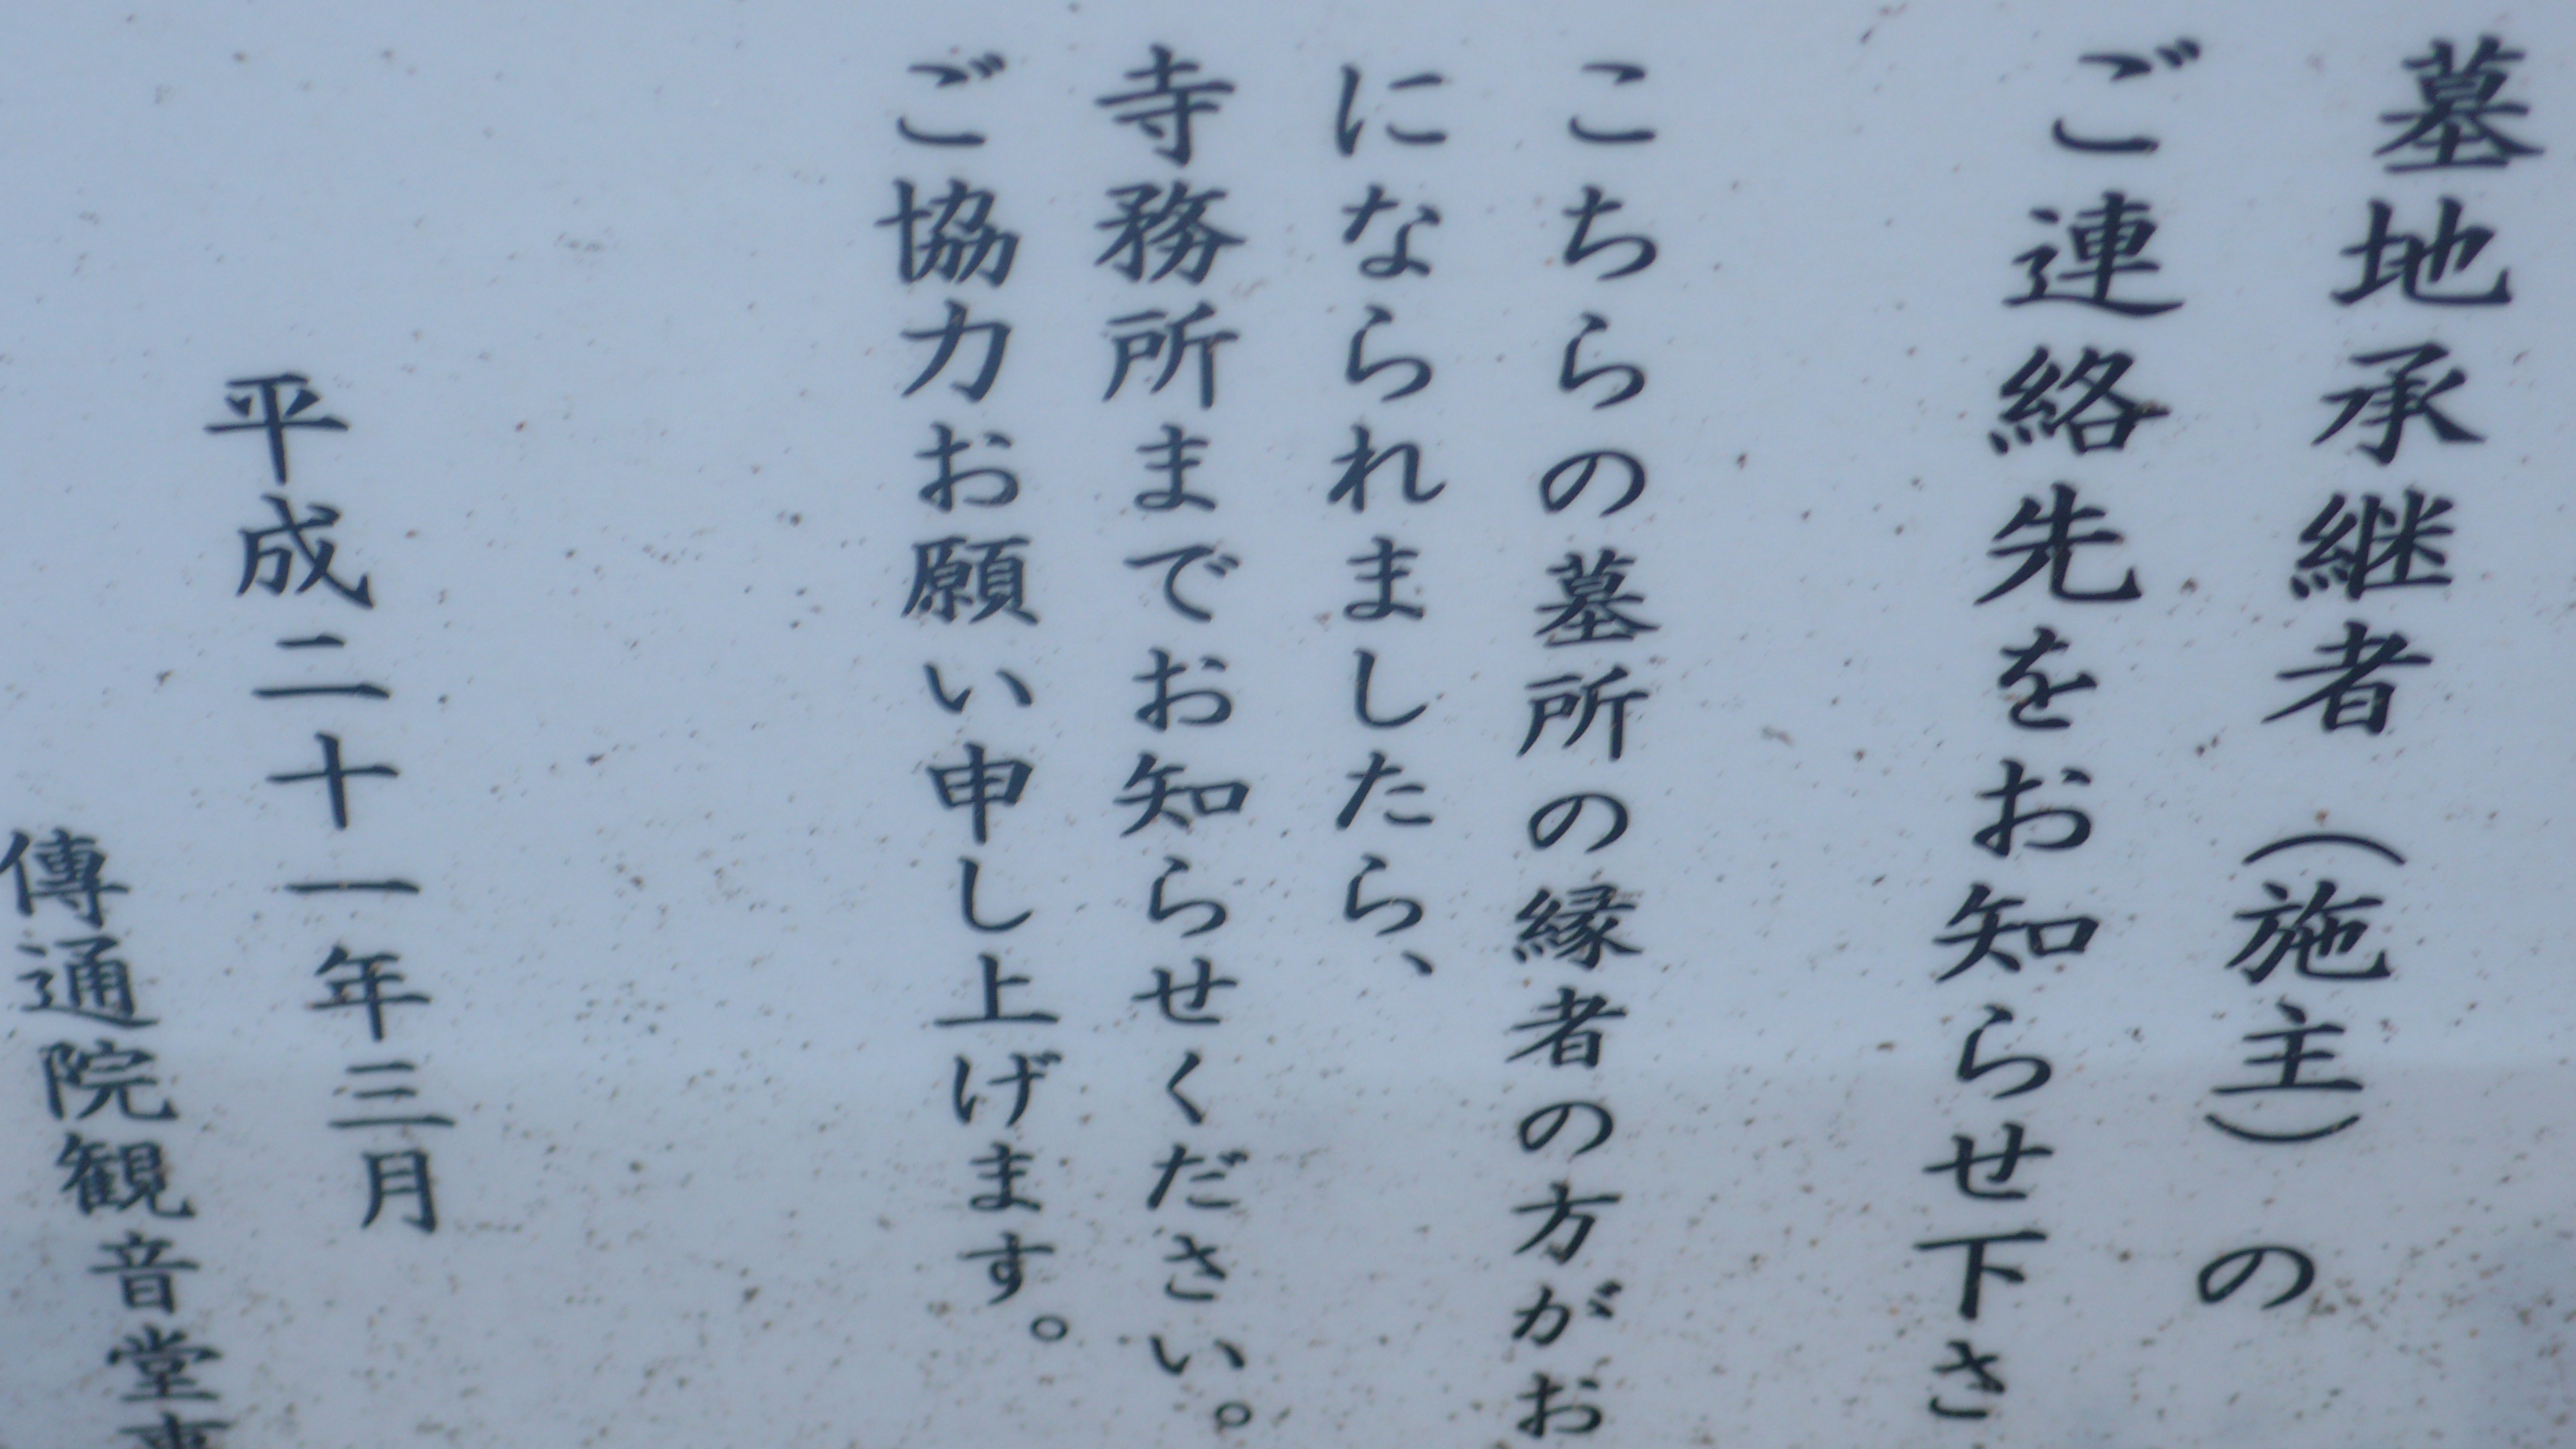 墓地承継者（施主）の
ご連絡先をお知らせ下さ
こちらの墓所の縁者の方がお
になられましたら、
寺務所までお知らせください。
ご協力お願い申し上げます。
平成二十一年三月
傳通院観音堂事